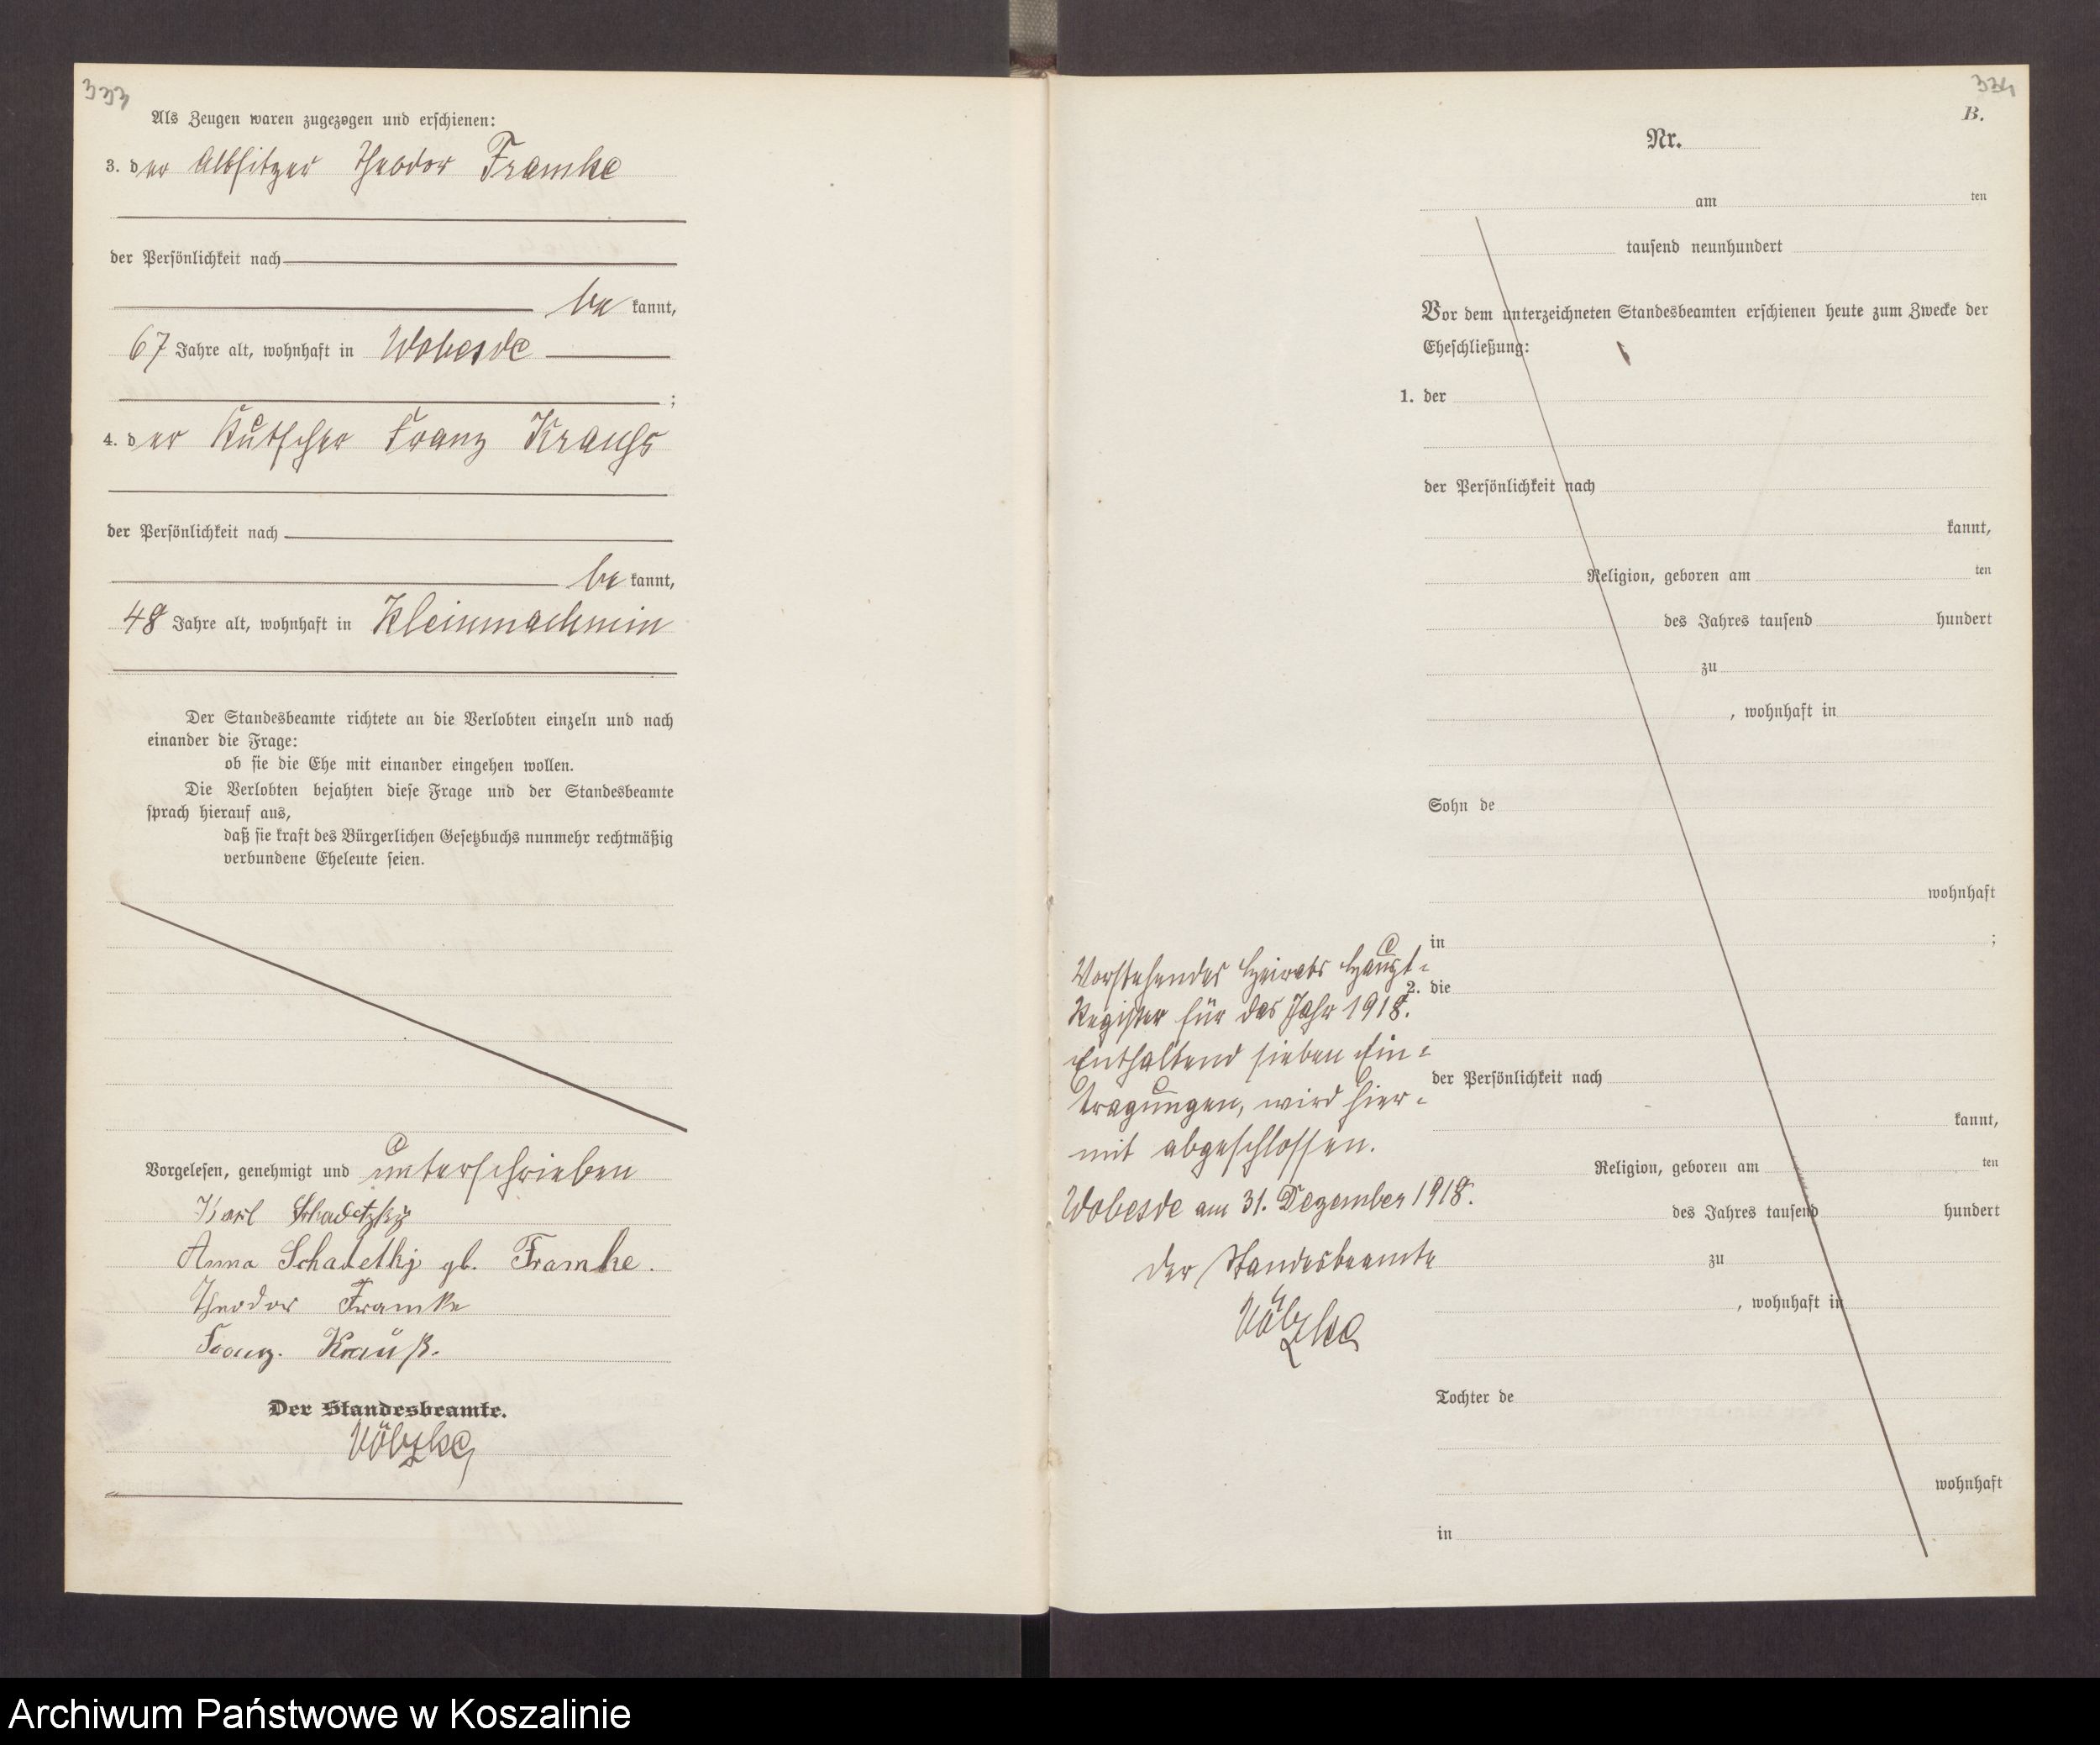 333
Als Zeugen waren zugezogen und erschienen:
3. der Altsitzer Theodor Framke
der Persönlichkeit nach
be kannt,
67 Jahre alt, wohnhaft in Wobesde
;
4. der Kutscher Franz Krauhs
der Persönlichkeit nach
be kannt,
48 Jahre alt, wohnhaft in Kleinmachmin
Der Standesbeamte richtete an die Verlobten einzeln und nach
einander die Frage:
ob sie die Ehe mit einander eingehen wollen.
Die Verlobten bejahten diese Frage und der Standesbeamte
sprach hierauf aus,
daß sie kraft des Bürgerlichen Gesetzbuchs nunmehr rechtmäßig
verbundene Eheleute seien.
Vorgelesen, genehmigt und unterschrieben
Karl Schadetzky
Anna Schadetkj gb. Framke.
Theodor Framke
Franz. Krauß.
Der Standesbeamte.
Völzke
334
B.
Nr.
am ten
tausend neunhundert
Vor dem unterzeichneten Standesbeamten erschienen heute zum Zwecke der
Eheschließung:
1. der
der Persönlichkeit nach
kannt,
Religion, geboren am ten
des Jahres tausend hundert
zu
, wohnhaft in
Sohn de
wohnhaft
in ;
2. die
der Persönlichkeit nach
kannt,
Religion, geboren am ten
des Jahres tausend hundert
zu
, wohnhaft in
Tochter de
wohnhaft
in
Vorstehendes Heirats Haupt-
Register für das Jahr 1918.
Enthaltend sieben Ein-
tragungen, wird hier-
mit abgeschlossen.
Wobesde am 31. Dezember 1918.
Der Standesbeamte
Völzke
Archiwum Państwowe w Koszalinie